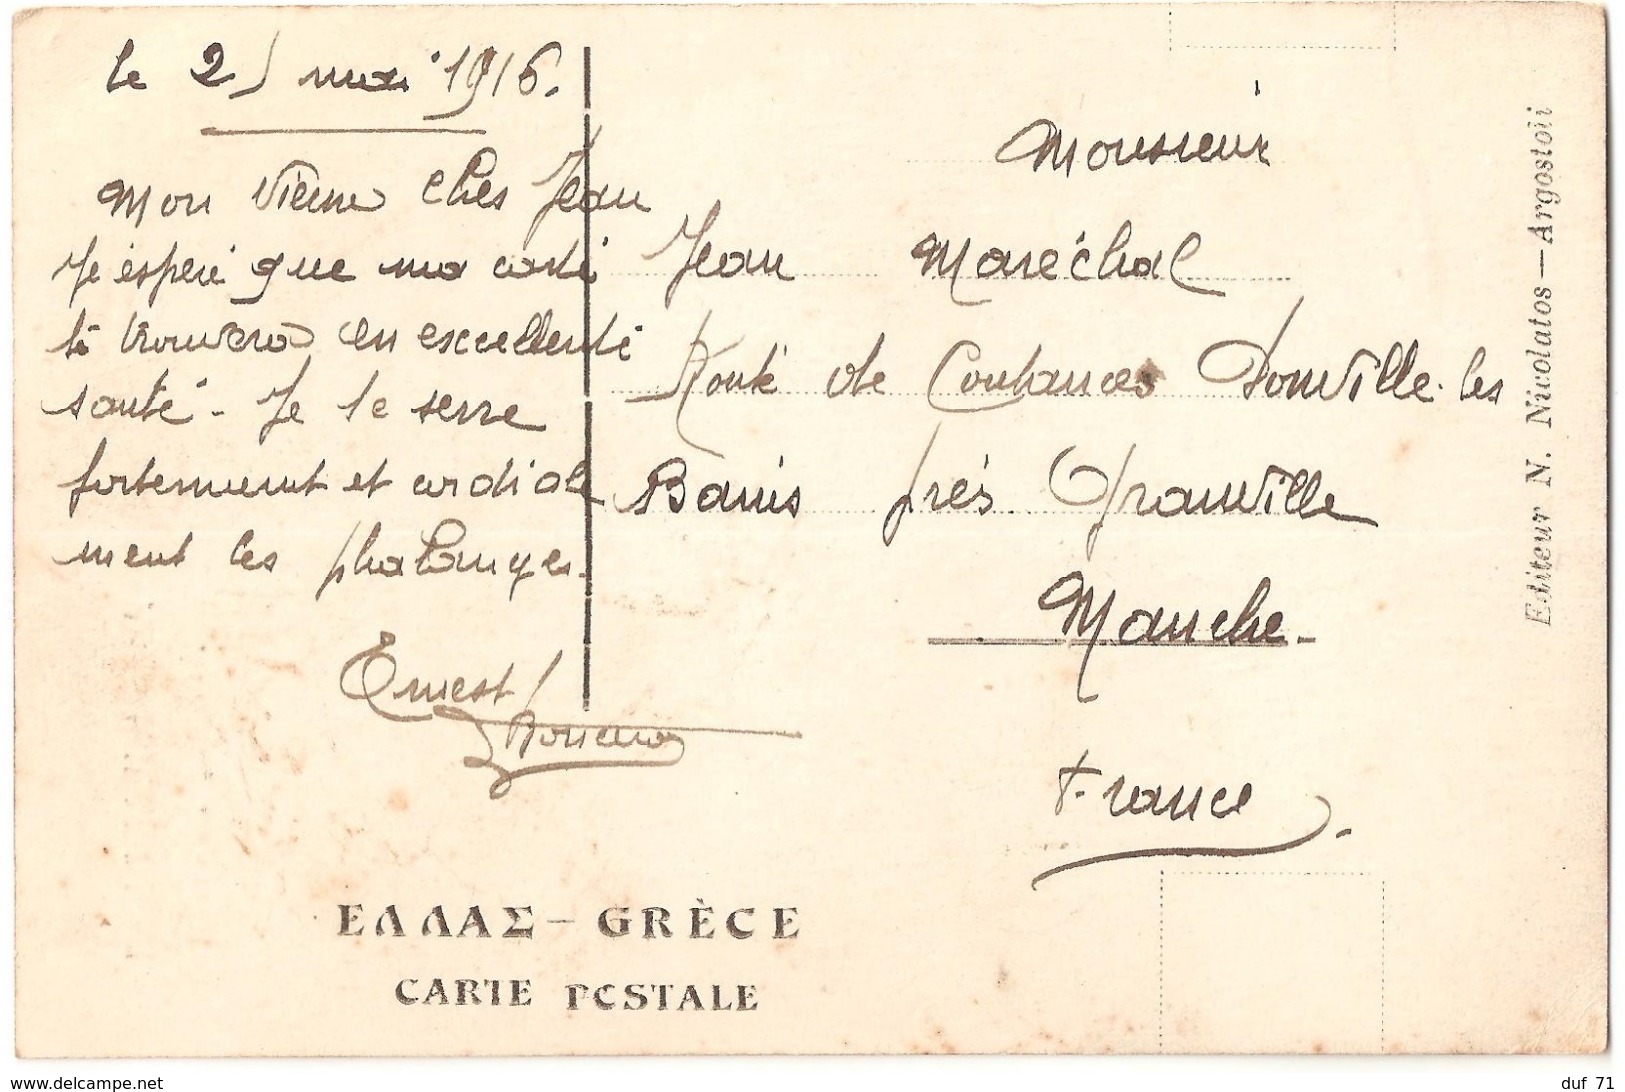 le 2 mai 1916.
Mon vieux cher Jean
Je éspère que ma carte
te trouvera en excellente
santé - Je te serre
fortement et cordiale
ment les phalanges.
Ernest
Monsieur
Jean Maréchal
Route de Coutances Donville-les
Bains près Granville
Manche
France
ΕΛΛΑΣ – GRÈCE
CARTE POSTALE
Editeur N. Nicolatos — Argostoli
www.delcampe.net
duf_71